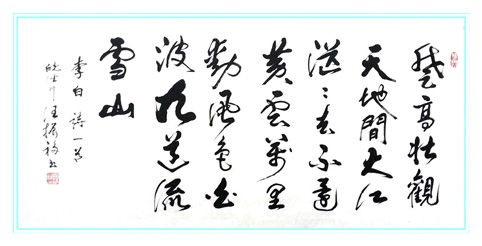 登高壯觀
天地間大江
茫〻去不還
黃雲萬里
動風色白
波九道流
雪山
李白詩一首
汪振書